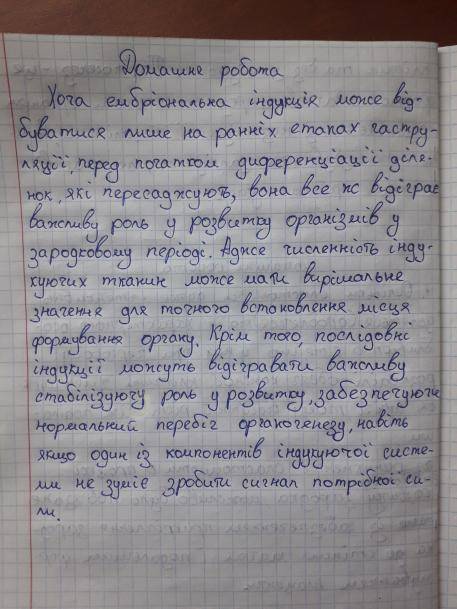 Домашнє робота
Хоча ембріональна індукція може від-
буватися лише на ранніх етапах гастру-
ляції, перед початком диференціації діля-
нок, які пересаджують, вона все ж відіграє
важливу роль у розвитку організмів у
зародковому періоді. Адже численність інду-
куючих тканин може мати вирішальне
значення для точного встановлення місця
формування органу. Крім того, послідовні
індукції можуть відігравати важливу
стабілізуючу роль у розвитку, забезпечуючи
нормальний перебіг органогенезу, навіть
якщо один із компонентів індукуючої систе-
ми не зуміє зробити сигнал потрібної си-
ли.